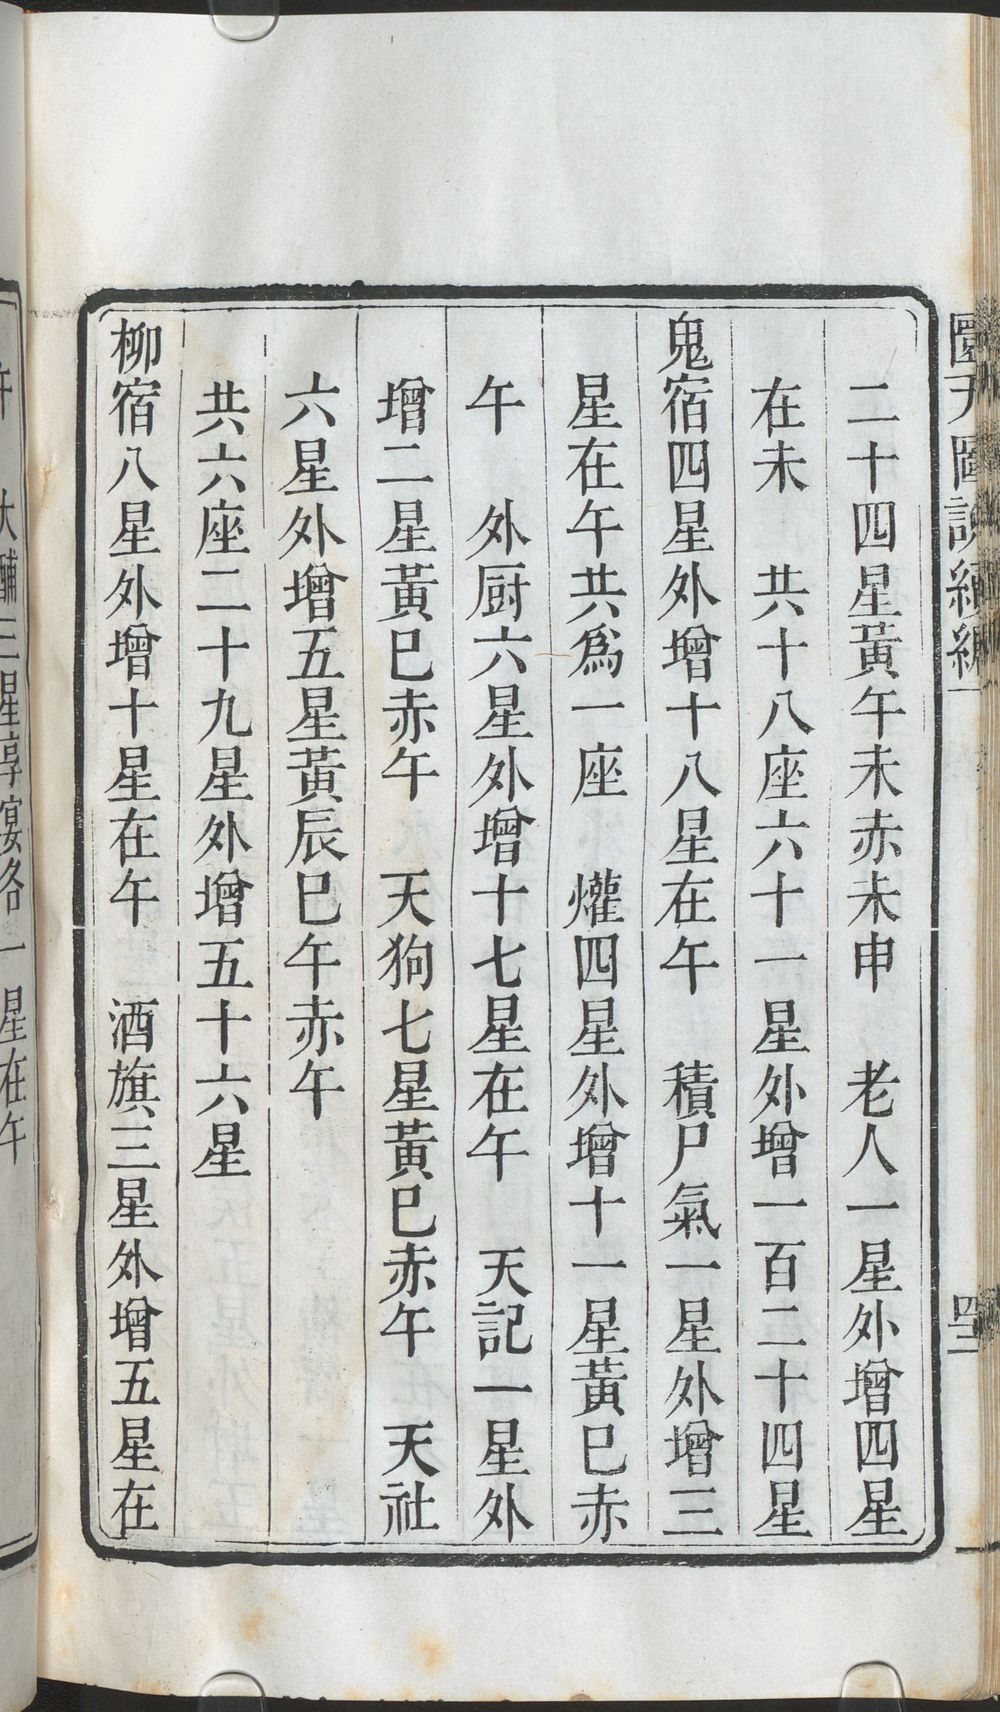 圜天圖說續編
四三
二十四星黃午未赤未申　老人一星外增四星
在未　共十八座六十一星外增一百二十四星
鬼宿四星外增十八星在午　積尸氣一星外增三
星在午共爲一座　爟四星外增十一星黃巳赤
午　外厨六星外增十七星在午　天記一星外
增二星黃巳赤午　天狗七星黃巳赤午　天社
六星外增五星黃辰巳午赤午
共六座二十九星外增五十六星
柳宿八星外增十星在午　酒旗三星外增五星在
午　大酺三星享宴各一星在午